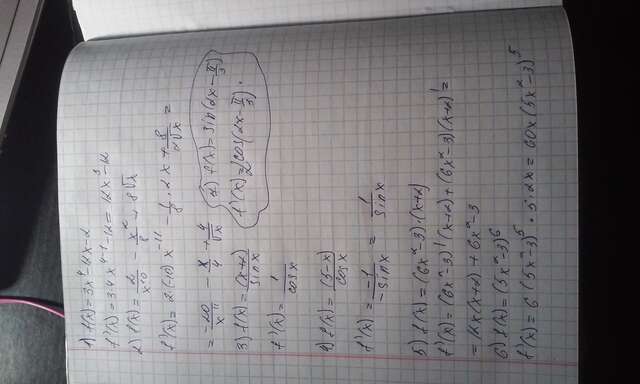 1) f(x)=3x⁴-12x-2
f'(x)=3·4x⁴⁻¹-12=12x³-12
2) f(x)=2/x¹⁰ - x²/8 + 8√x
f'(x)=2·(-10)x⁻¹¹ - 1/8·2x + 8/2√x =
= -20/x¹¹ - x/4 + 4/√x
7) f(x)=sin(2x-π/3)
f'(x)=2cos(2x-π/3).
3) f(x)=(x+2)/sinx
f'(x)=1/cosx
4) f(x)=(5-x)/cosx
f'(x)=-1/-sinx = 1/sinx
5) f(x)=(6x²-3)·(x+2)
f'(x)=(6x²-3)'(x+2)+(6x²-3)(x+2)'=
=12x(x+2)+6x²-3
6) f(x)=(5x²-3)⁶
f'(x)=6(5x²-3)⁵·5·2x=60x(5x²-3)⁵